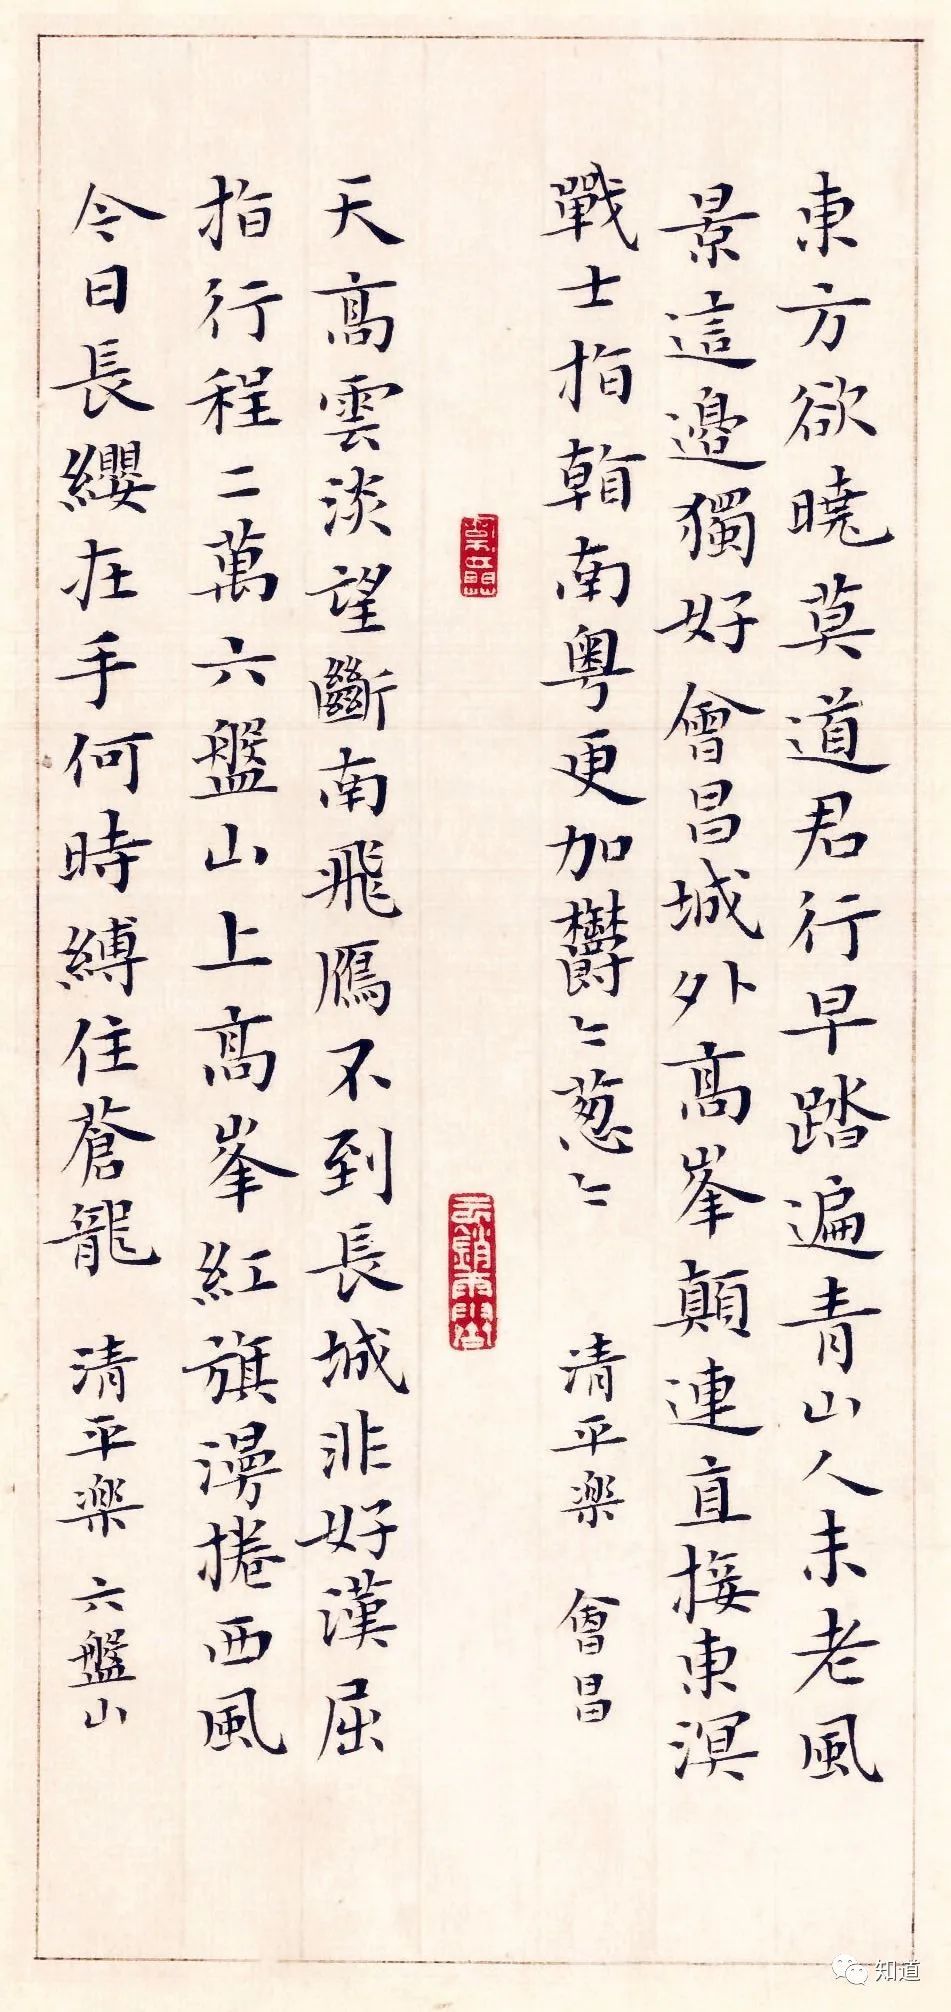 東方欲曉莫道君行早踏遍青山人未老風
景這邊獨好會昌城外高峯顛連直接東溟
戰士指看南粤更加鬱〻葱〻 清平楽 會昌
天高雲淡望斷南飛鴈不到長城非好漢屈
指行程二萬六盤山上高峯紅旗漫捲西風
今日長纓在手何時縛住蒼龍 清平楽 六盤山
知道